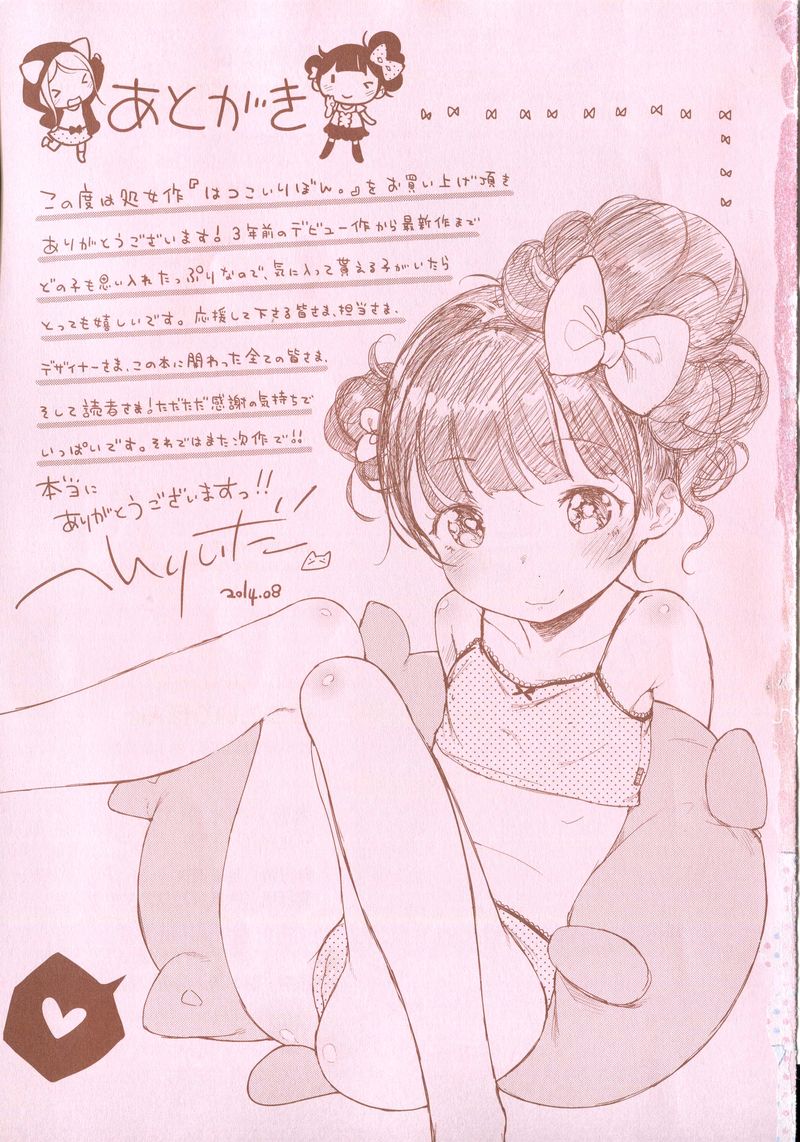 あとがき
この度は処女作『はつこいりぼん。』をお買い上げ頂き
ありがとうございます！3年前のデビュー作から最新作まで
どの子も思い入れたっぷりなので、気に入って貰える子がいたら
とっても嬉しいです。応援して下さる皆さま、担当さま、
デザイナーさま、この本に関わった全ての皆さま、
そして読者さま！ただただ感謝の気持ちで
いっぱいです。それではまた次作で！！
本当に
ありがとうございますっ！！
へんりいだ
2014.08